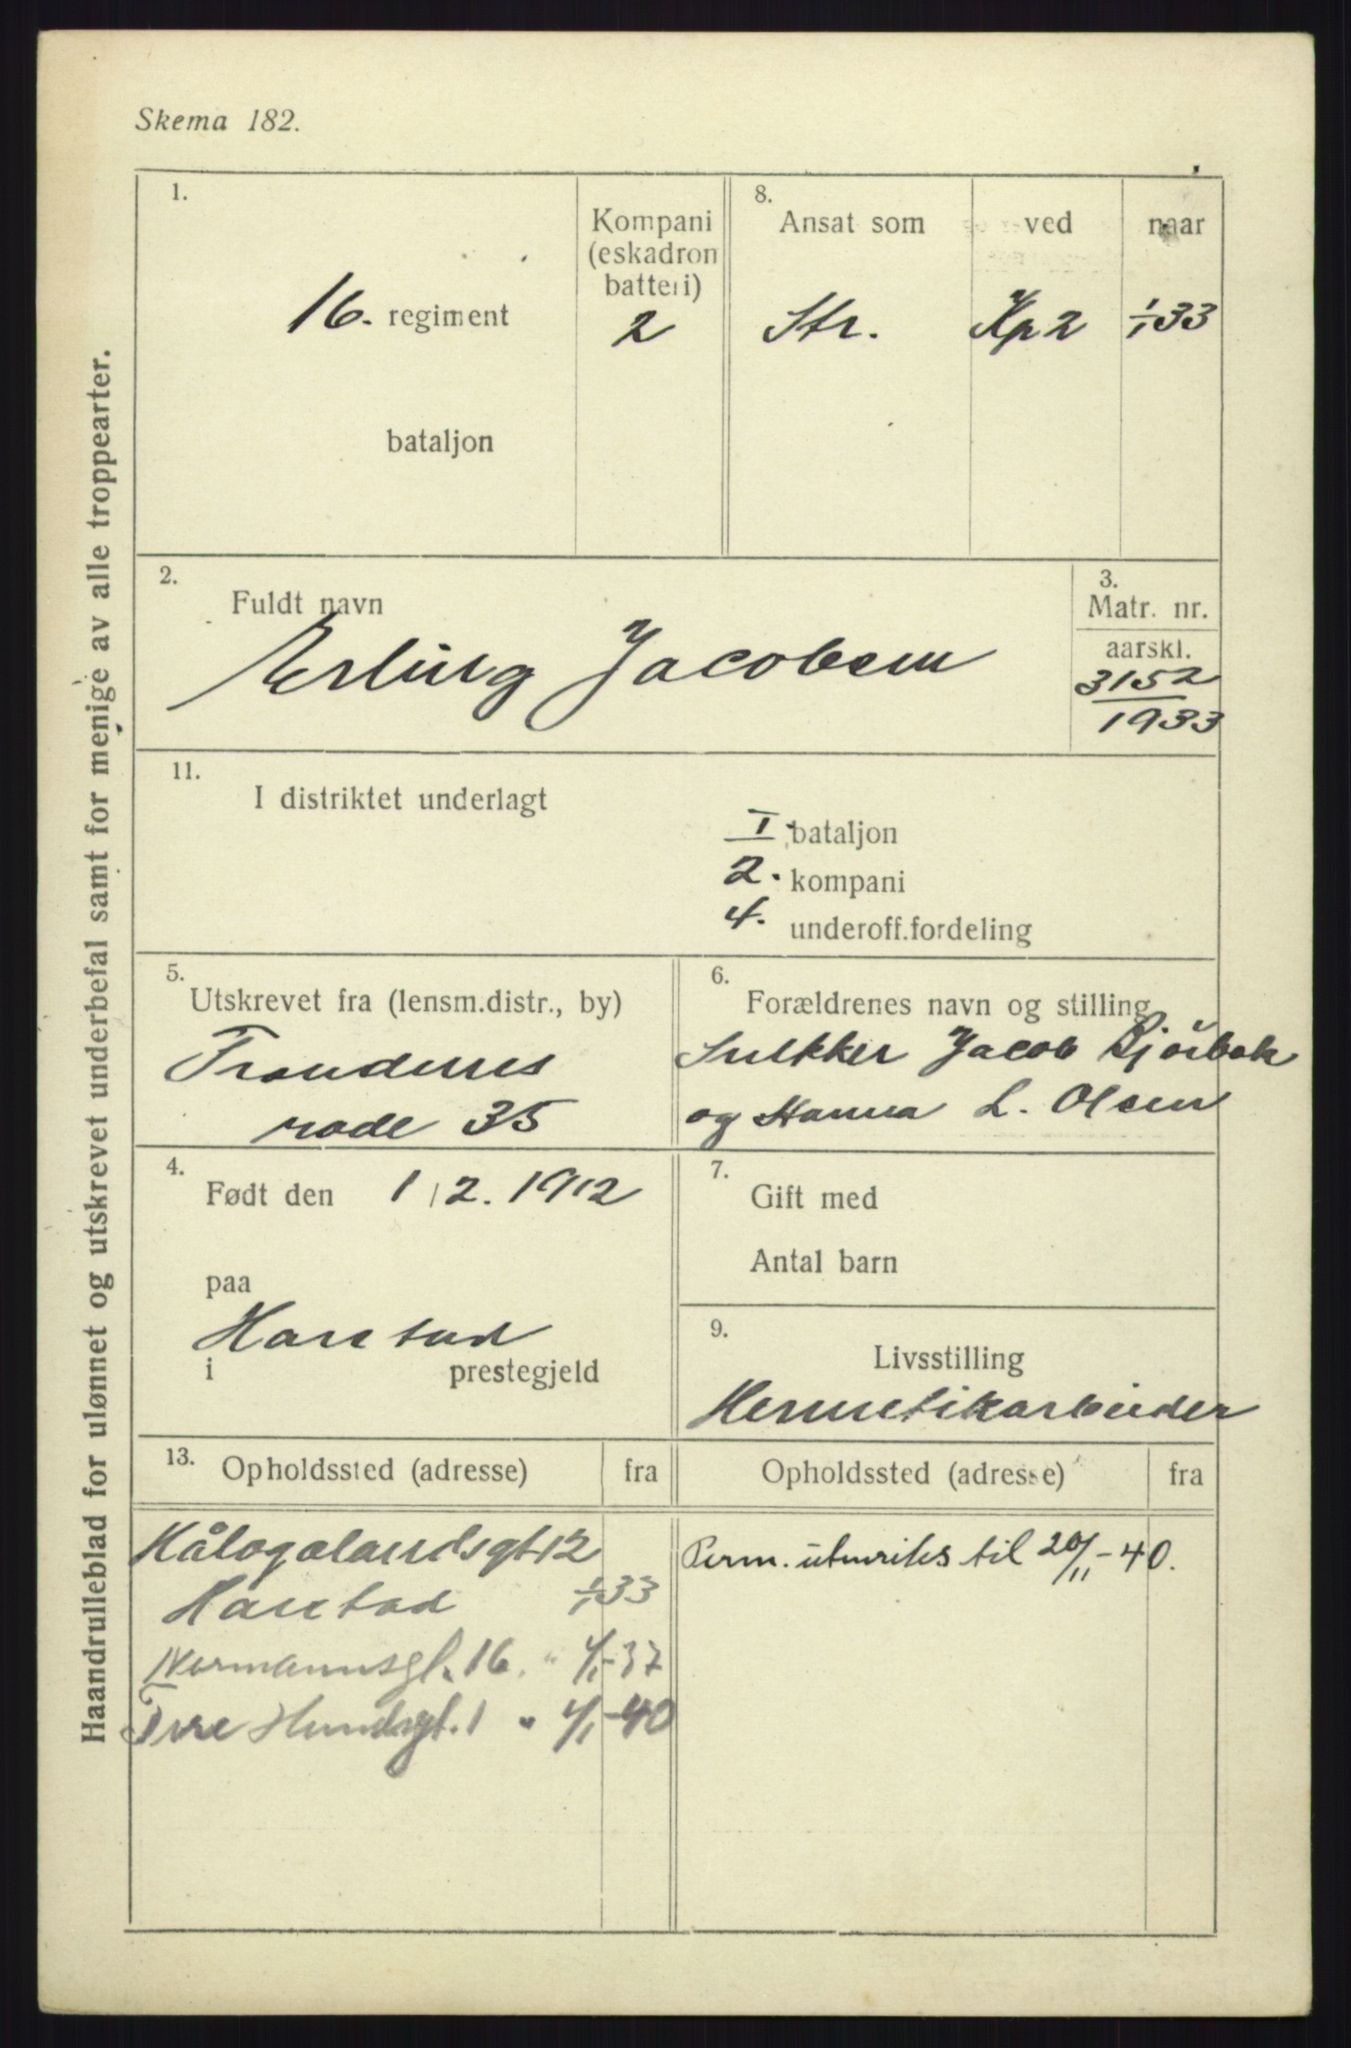 Skema 182.
Haandrulleblad for ulønnet og utskrevet underbefal samt for menige av alle troppearter.
1.
16. regiment
bataljon
Kompani
(eskadron
batteri)
2
8.
Ansat som ved naar
Str. Kp 2 1/1 33
2.
Fuldt navn
Erling Jacobsen
3.
Matr. nr.
aarskl.
3152
1933
11.
I distriktet underlagt
I bataljon
2. kompani
4. underoff.fordeling
5.
Utskrevet fra (lensm.distr., by)
Trondenes
rode 35
6.
Forældrenes navn og stilling
Jacob
og Hanna L. Olsen
4.
Født den 1/2. 1912
paa
Harstad
i prestegjeld
7.
Gift med
Antal barn
9.
Livsstilling
Hermetikarbeider
13.
Opholdssted (adresse) fra
Hålogalandsgt 12
Harstad 1/1 33
Normannsgt. 16. " 1/1-37
Tore Hundsgt. 1 " 1/1-40
Opholdssted (adresse) fra
Perm. utenriks til 20/11-40.